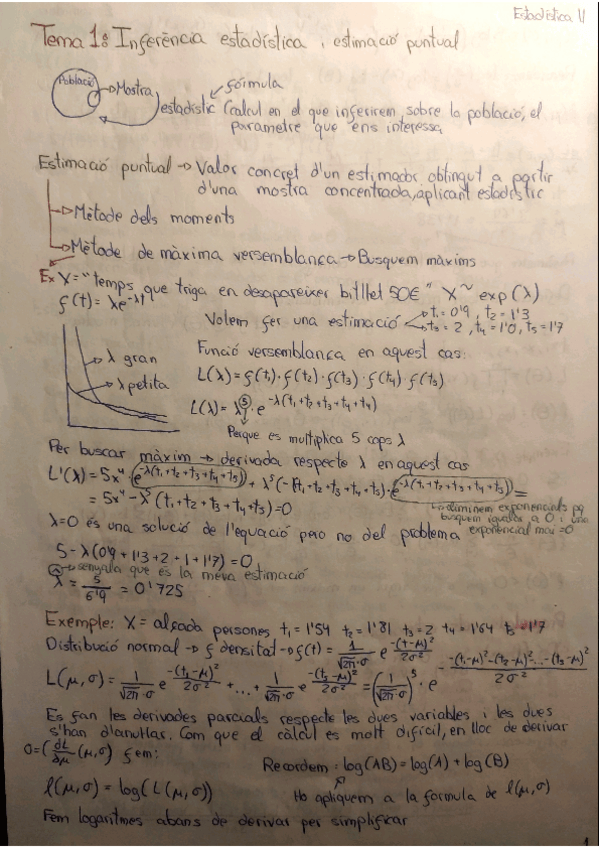 Estadística II
Tema 1: Inferència estadística i estimació puntual
Població
Mostra
fórmula
estadístic (calcul en el que inferirem sobre la població, el
parametre que ens interessa
Estimació puntual → Valor concret d'un estimador obtingut a partir
d'una mostra concentrada, aplicant estadístic
→ Mètode dels moments
→ Mètode de màxima versemblança → Busquem màxims
Ex X = "temps que triga en desaparèixer bitllet 50€" X ~ exp(λ)
f(t) = λe^-λt
Volem fer una estimació → t₁ = 0'9, t₂ = 1'3
→ t₃ = 2, t₄ = 1'0, t₅ = 1'7
λ gran
λ petita
Funció versemblança en aquest cas:
L(λ) = f(t₁)·f(t₂)·f(t₃)·f(t₄)·f(t₅)
L(λ) = λ^5 · e^-λ(t₁+t₂+t₃+t₄+t₅)
Perque es multiplica 5 cops λ
Per buscar màxim → derivada respecte λ en aquest cas
L'(λ) = 5x⁴ · e^-λ(t₁+t₂+t₃+t₄+t₅) + λ⁵(-(t₁+t₂+t₃+t₄+t₅)· e^-λ(t₁+t₂+t₃+t₄+t₅) =
= 5x⁴ - λ⁵(t₁+t₂+t₃+t₄+t₅) = 0
→ eliminem exponencials pq
busquem igualar a 0 i una
exponencial mai = 0
λ=0 és una solució de l'equació pero no del problema
5 - λ(0'9 + 1'3 + 2 + 1 + 1'7) = 0
^ → senyala que és la meva estimació
λ = 5/6'9 = 0'725
Exemple: X = alçada persones t₁ = 1'54 t₂ = 1'81 t₃ = 2 t₄ = 1'64 t₅ = 1'7
Distribució normal → f densitat → f(t) = 1/(√2π·σ) e^(-(t-μ)²/2σ²)
L(μ,σ) = 1/(√2π·σ) e^(-(t₁-μ)²/2σ²) + ... + 1/(√2π·σ) e^(-(t₅-μ)²/2σ²) = (1/(√2π·σ))^5 · e^(-(t₁-μ)²-(t₂-μ)²-...-(t₅-μ)²/2σ²)
Es fan les derivades parcials respecte les dues variables i les dues
s'han d'anul·lar. Com que el càlcul es molt difícil, en lloc de derivar
0 = (dL/dμ (μ,σ) fem:
Recordem: log(AB) = log(A) + log(B)
l(μ,σ) = log(L(μ,σ))
Ho apliquem a la formula de l(μ,σ)
Fem logaritmes abans de derivar per simplificar
1